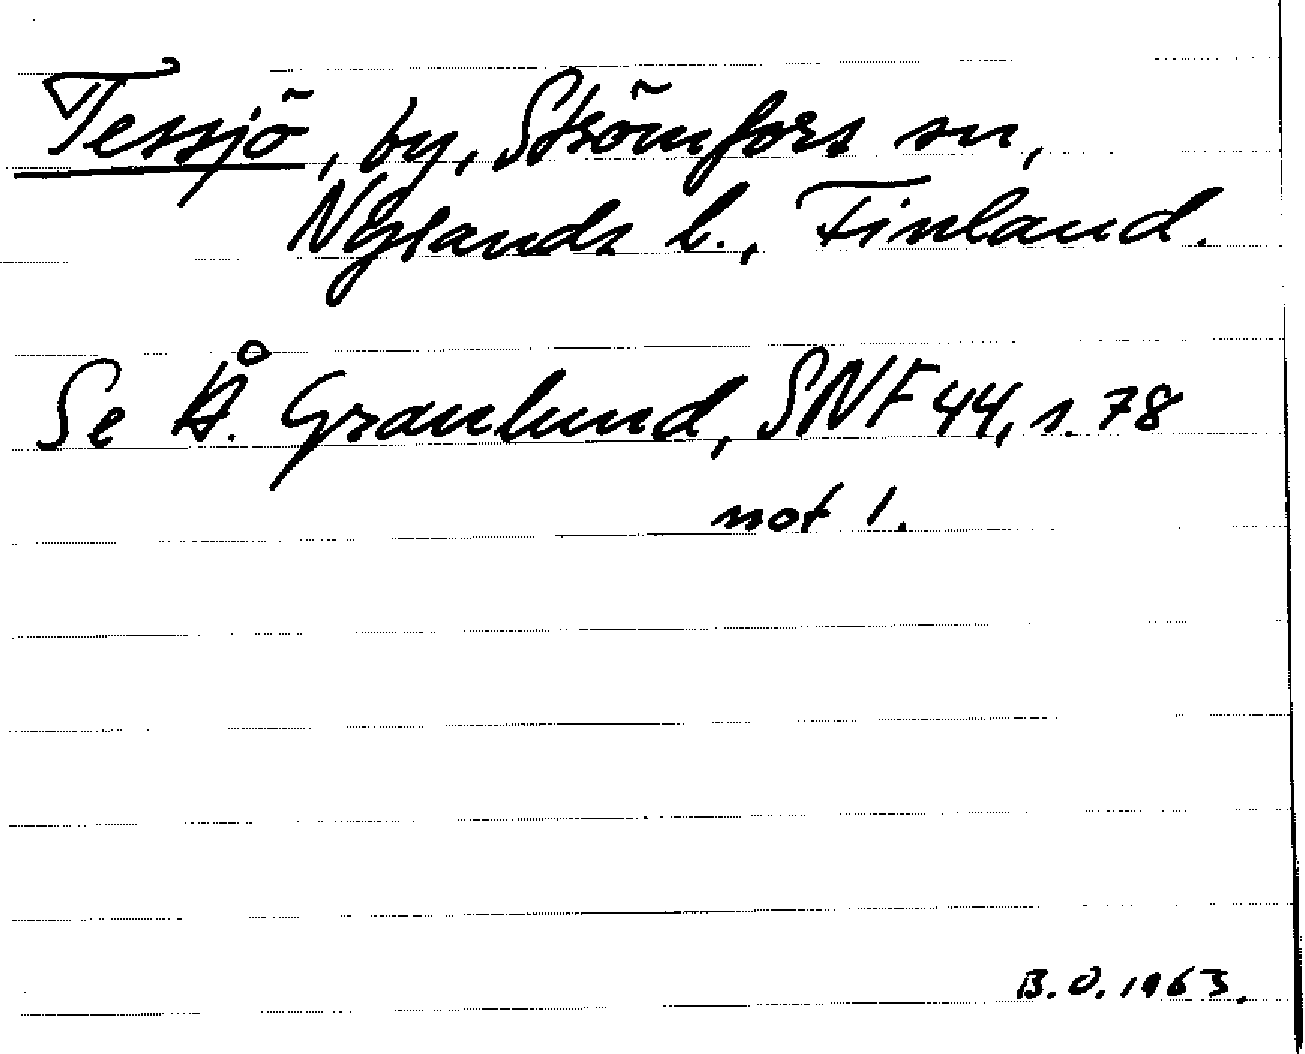 Tessjö, by, Strömfors sn,
Nylands l., Finland.
Se Å. Granlund, SNF 44, s. 78
not 1.
B. O. 1963.